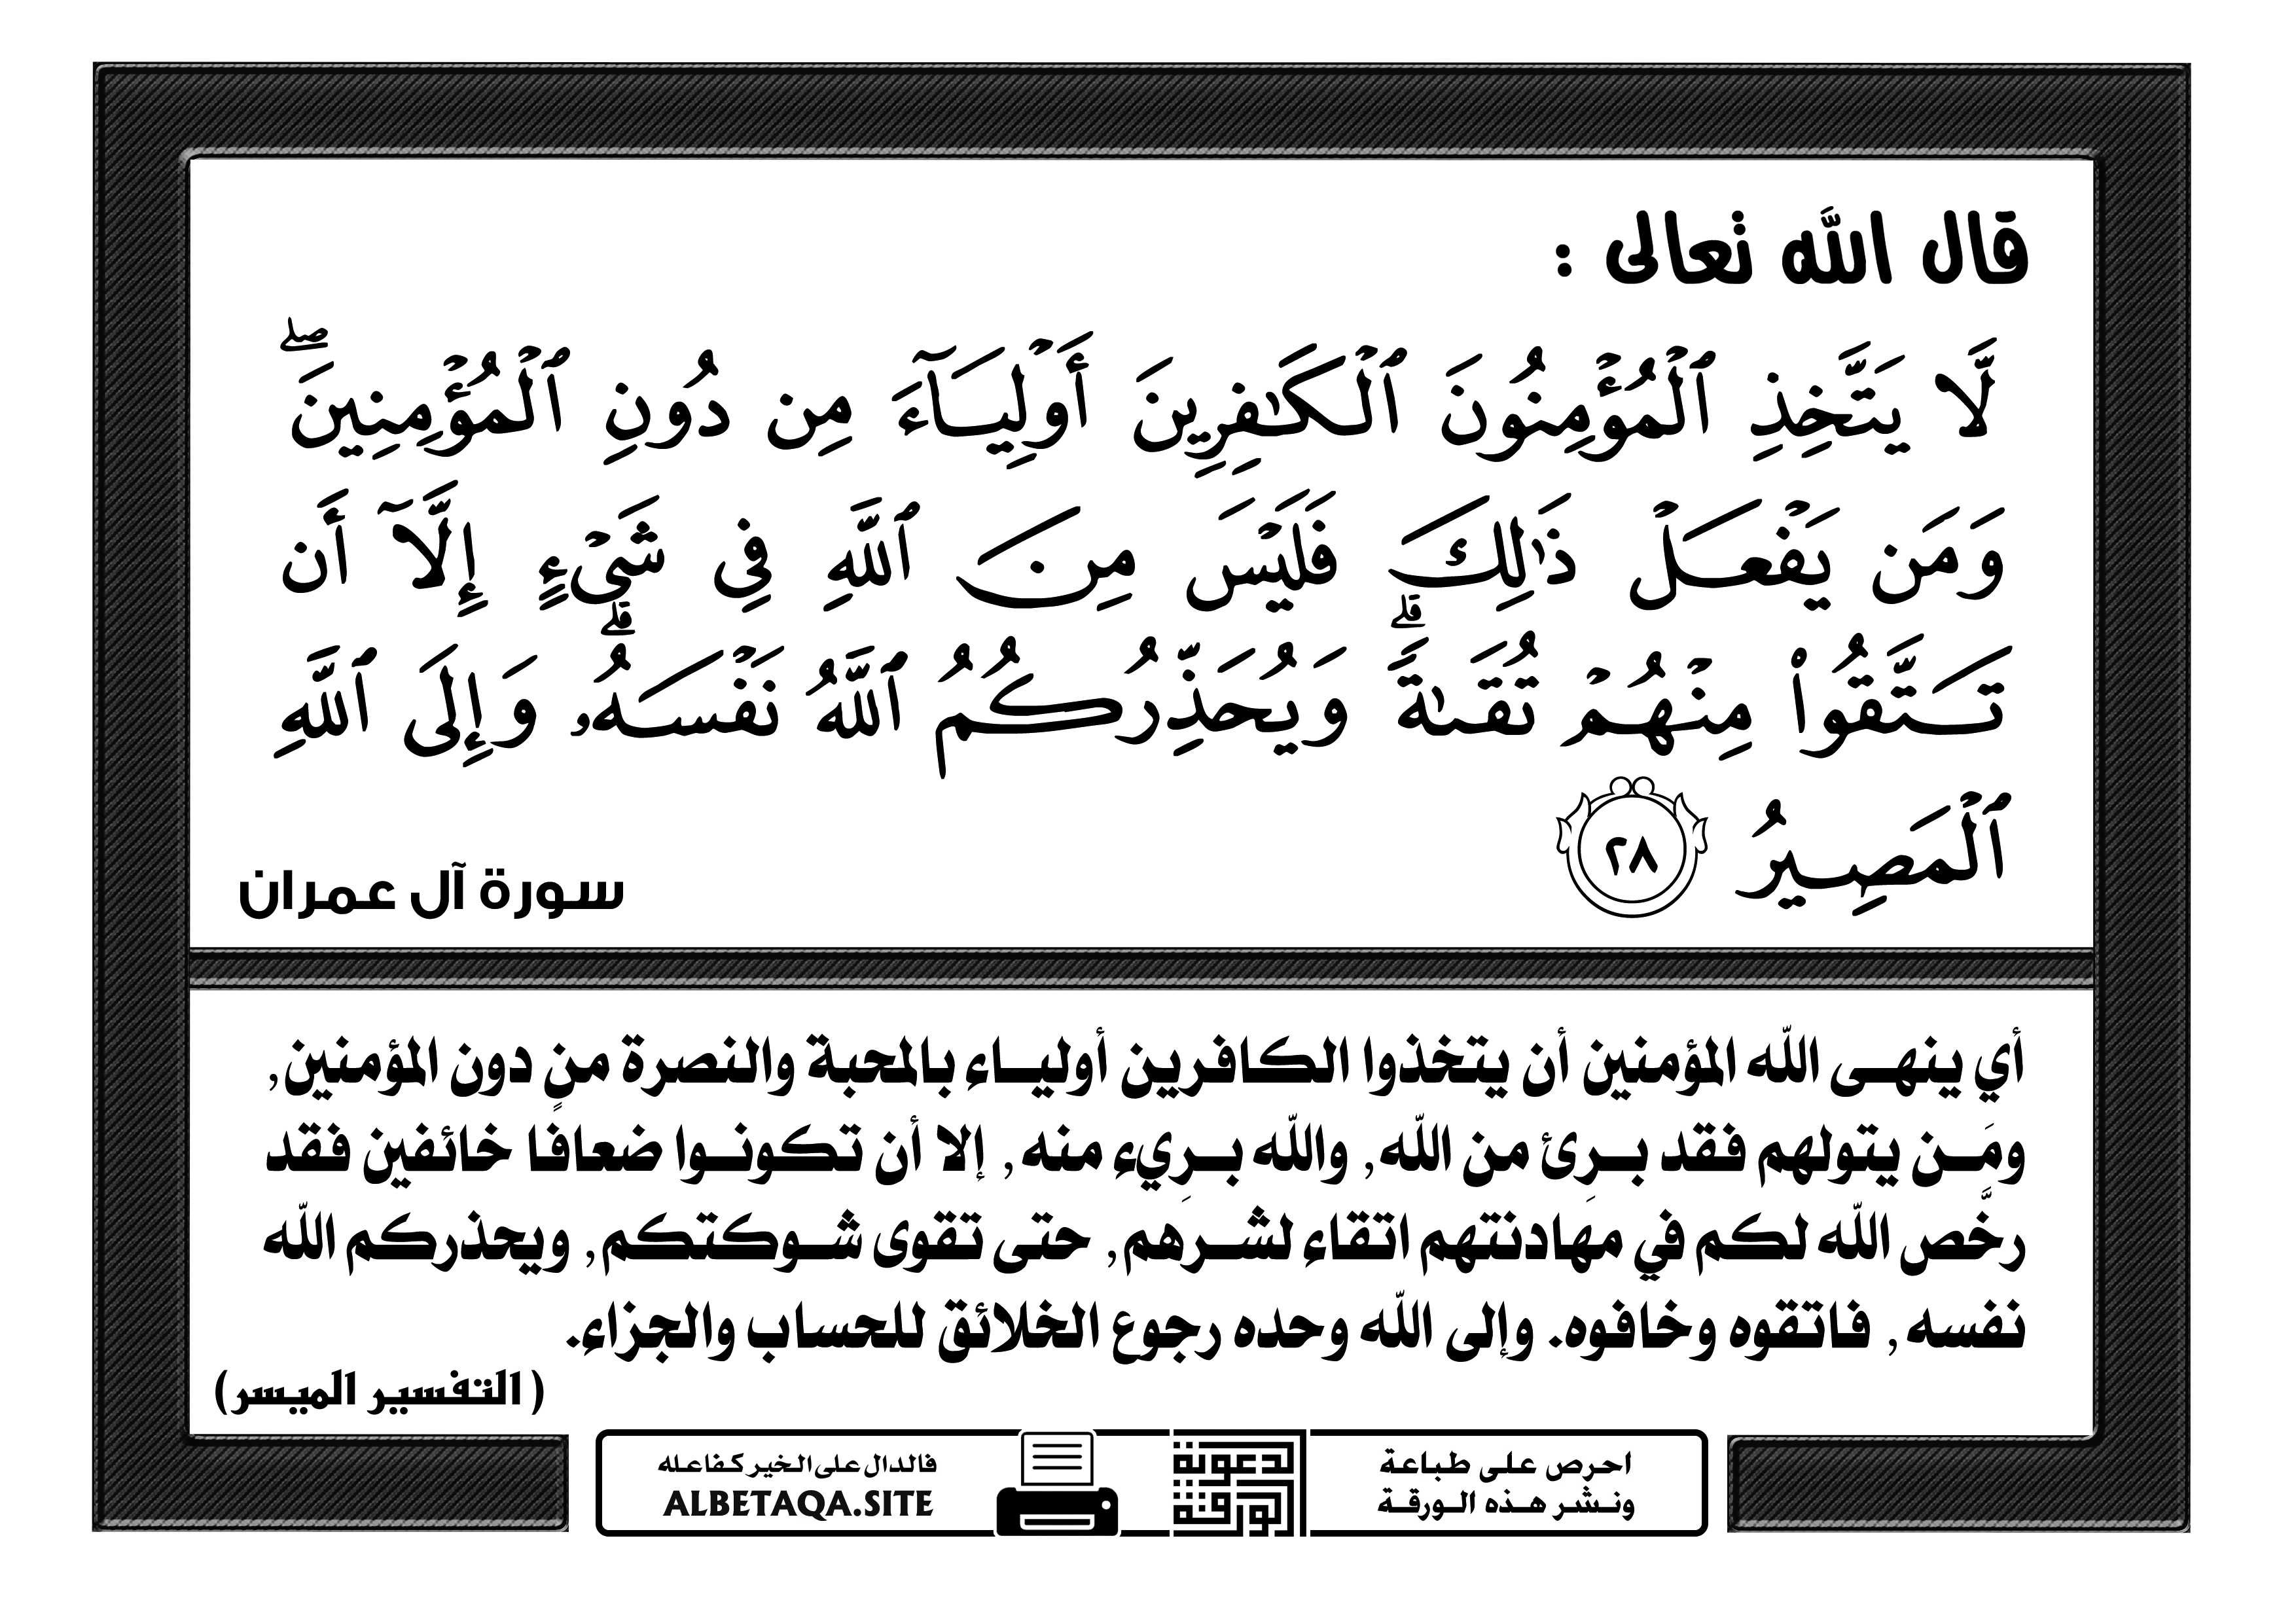 قال الله تعالى :
لَّا يَتَّخِذِ ٱلْمُؤْمِنُونَ ٱلْكَـٰفِرِينَ أَوْلِيَـآءَ مِن دُونِ ٱلْمُؤْمِنِينَ ۖ
وَمَن يَفْعَـلْ ذَٰلِكَ فَلَيْسَ مِنَ ٱللَّهِ فِى شَىْءٍ إِلَّآ أَن
تَـتَّقُوا۟ مِنْهُـمْ تُقَىٰةً ۗ وَيُحَذِّرُكُمُ ٱللَّهُ نَفْسَهُۥ ۗ وَإِلَى ٱللَّهِ
ٱلْمَصِـيرُ ٢٨
سورة آل عمران
أي ينهـى الله المؤمنين أن يتخذوا الكافرين أوليـاء بالمحبة والنصرة من دون المؤمنين,
ومَـن يتولهم فقد بـرِئ من الله, والله بـريء منه, إلا أن تكونـوا ضعافًا خائفين فقد
رخَّص الله لكم في مهادنتهم اتقاء لشـرهم, حتى تقوى شـوكتكم, ويحذركم الله
نفسه, فاتقوه وخافوه. وإلى الله وحده رجوع الخلائق للحساب والجزاء.
( التفسير الميسر)
احرص على طباعة
ونـشر هـذه الـورقـة
لدعوتة
الورقة
فالدال على الخير كفاعله
ALBETAQA.SITE